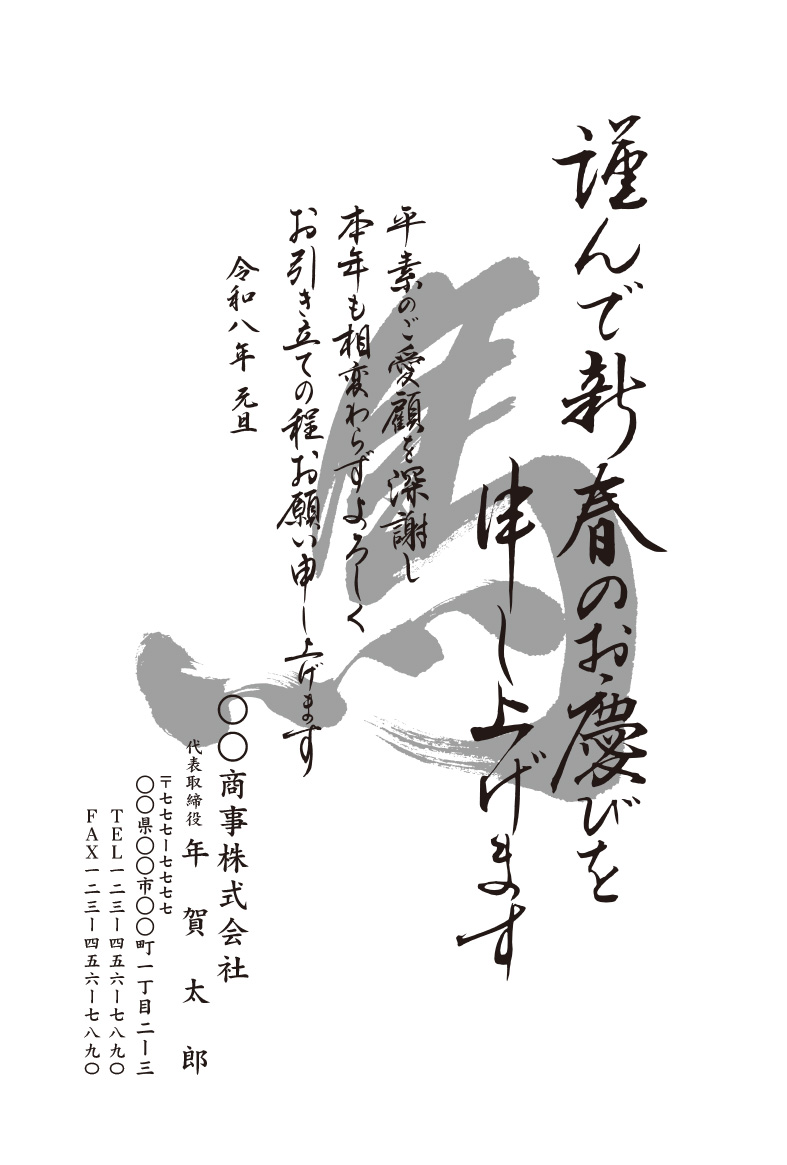 謹んで新春のお慶びを
申し上げます
平素のご愛顧を深謝し
本年も相変わらずよろしく
お引き立ての程お願い申し上げます
令和八年 元旦
馬
〇〇商事株式会社
代表取締役 年賀太郎
〒七七七ー七七七七
〇〇県〇〇市〇〇町一丁目二ー三
TEL一二三ー四五六ー七八九〇
FAX一二三ー四五六ー七八九〇